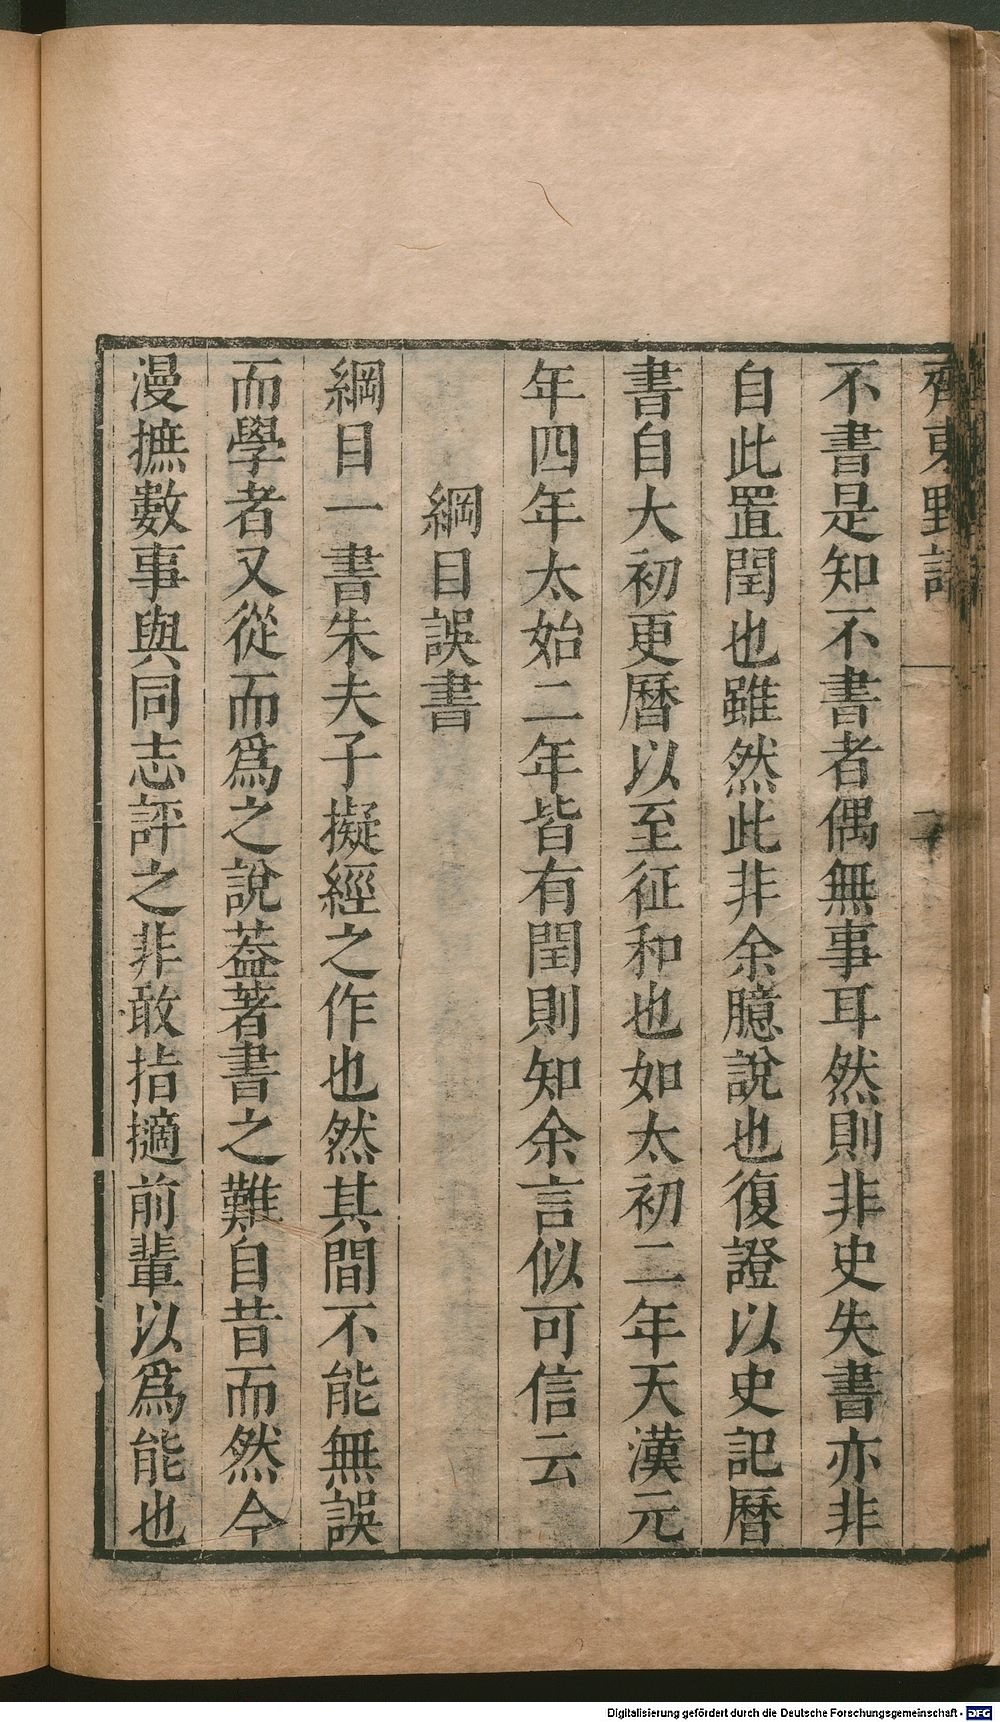 齊東野語
二
不書是知不書者偶無事耳然則非史失書亦非
自此置閏也雖然此非余臆說也復證以史記曆
書自大初更曆以至征和也如太初二年天漢元
年四年太始二年皆有閏則知余言似可信云
綱目誤書
綱目一書朱夫子擬經之作也然其間不能無誤
而學者又從而爲之說葢著書之難自昔而然今
漫摭數事與同志評之非敢指擿前輩以爲能也
Digitalisierung gefördert durch die Deutsche Forschungsgemeinschaft - DFG